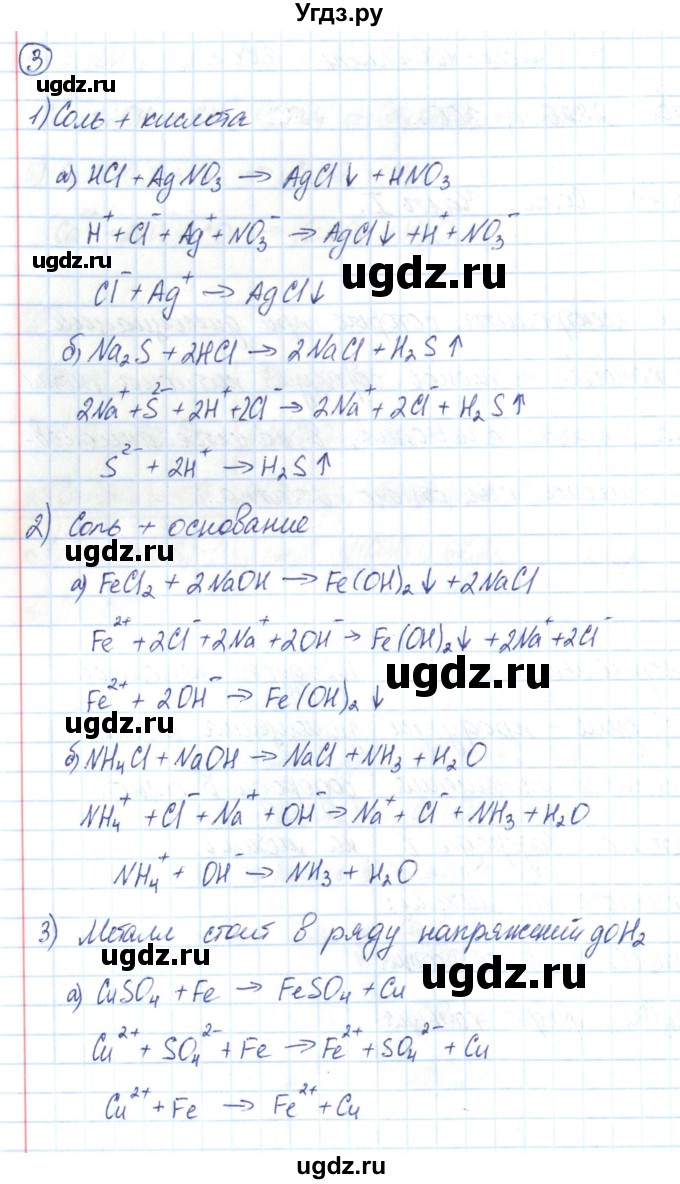 Угдз.ру
3
ugdz.ru
1) Соль + кислота
а) HCl + AgNO₃ → AgCl↓ + HNO₃
H⁺ + Cl⁻ + Ag⁺ + NO₃⁻ → AgCl↓ + H⁺ + NO₃⁻
ugdz.ru
ugdz.ru
Cl⁻ + Ag⁺ → AgCl↓
б) Na₂S + 2HCl → 2NaCl + H₂S↑
2Na⁺ + S²⁻ + 2H⁺ + 2Cl⁻ → 2Na⁺ + 2Cl⁻ + H₂S↑
S²⁻ + 2H⁺ → H₂S↑
2) Соль + основание
ugdz.ru
а) FeCl₂ + 2NaOH → Fe(OH)₂↓ + 2NaCl
Fe²⁺ + 2Cl⁻ + 2Na⁺ + 2OH⁻ → Fe(OH)₂↓ + 2Na⁺ + 2Cl⁻
ugdz.ru
Fe²⁺ + 2OH⁻ → Fe(OH)₂↓
ugdz.ru
б) NH₄Cl + NaOH → NaCl + NH₃ + H₂O
NH₄⁺ + Cl⁻ + Na⁺ + OH⁻ → Na⁺ + Cl⁻ + NH₃ + H₂O
NH₄⁺ + OH⁻ → NH₃ + H₂O
3) Металл стоит в ряду напряжений до H₂
ugdz.ru
ugdz.ru
а) CuSO₄ + Fe → FeSO₄ + Cu
Cu²⁺ + SO₄²⁻ + Fe → Fe²⁺ + SO₄²⁻ + Cu
Cu²⁺ + Fe → Fe²⁺ + Cu
ugdz.ru
ugdz.ru